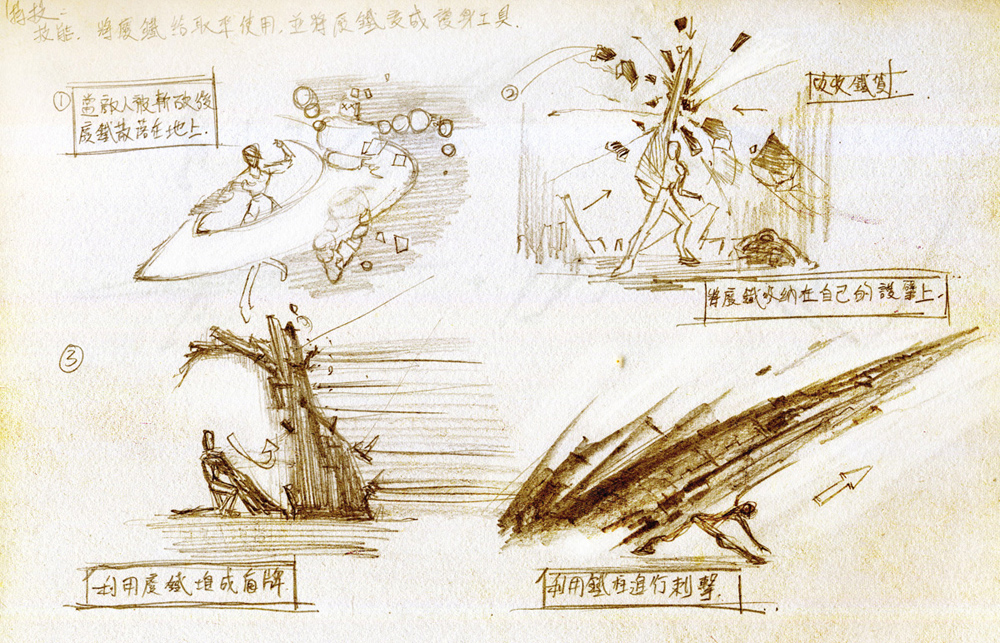 特技:
技能. 將廢鐵給取來使用,並將廢鐵變成護身工具.
①
當敵人被斬破後
廢鐵散落在地上.
②
吸收鐵質
將廢鐵收納在自己的護臂上.
③
利用廢鐵堆成盾牌
利用鐵柱進行刺擊.